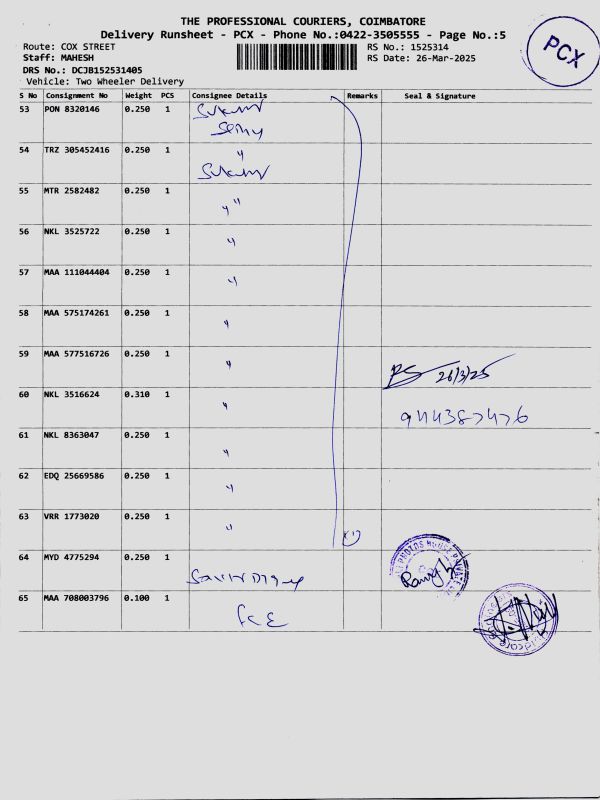 THE PROFESSIONAL COURIERS, COIMBATORE
Delivery Runsheet - PCX - Phone No.:0422-3505555 - Page No.:5
Route: COX STREET
Staff: MAHESH
DRS No.: DCJB152531405
Vehicle: Two Wheeler Delivery
RS No.: 1525314
RS Date: 26-Mar-2025
PCX
S No Consignment No Weight PCS Consignee Details Remarks Seal & Signature
53 PON 8320146 0.250 1
54 TRZ 305452416 0.250 1 "
55 MTR 2582482 0.250 1 " "
56 NKL 3525722 0.250 1 "
57 MAA 111044404 0.250 1 "
58 MAA 575174261 0.250 1 "
59 MAA 577516726 0.250 1 " 26/3/25
60 NKL 3516624 0.310 1 "
61 NKL 8363047 0.250 1 "
62 EDQ 25669586 0.250 1 "
63 VRR 1773020 0.250 1 "
64 MYD 4775294 0.250 1
65 MAA 708003796 0.100 1